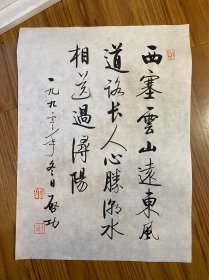 西塞雲山遠東風
道路長人心勝潮水
相送過潯陽
一九九零年冬日啟功